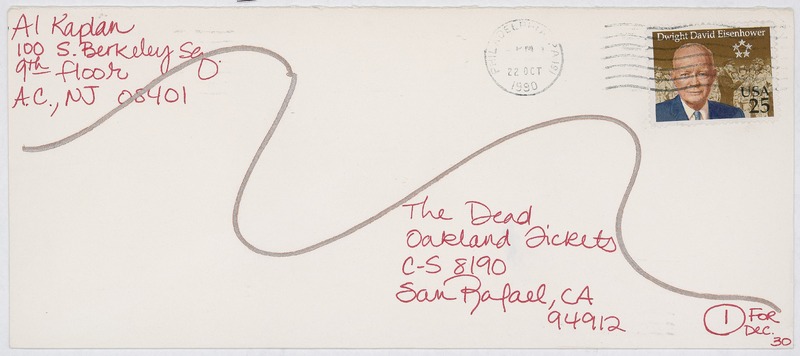 Al Kaplan
100 S. Berkeley Sq
9th floor
A.C., NJ 08401
PHILADELPHIA, PA 191
PM
22 OCT
1990
Dwight David Eisenhower
USA
25
The Dead
Oakland Tickets
C-S 8190
San Rafael, CA
94912
1 FOR
Dec.
30